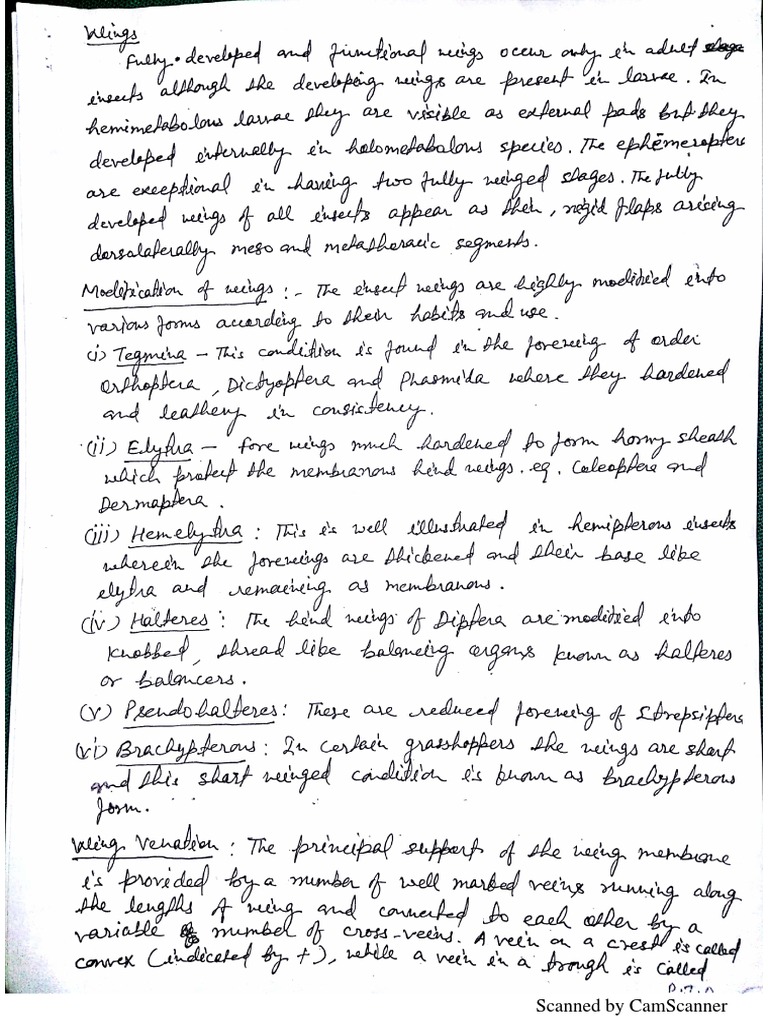 Wings
Fully developed and functional wings occur only in adult
insects although the developing wings are present in larvae. In
hemimetabolous larvae they are visible as external pads but they
developed internally in holometabolous species. The ephemeroptera
are exceptional in having two fully winged stages. The fully
developed wings of all insects appear as thin, rigid flaps arising
dorsalaterally meso and metathoracic segments.
Modification of wings :- The insect wings are highly modified into
various forms according to their habits and use.
(i) Tegmina - This condition is found in the forewing of order
Orthoptera, Dictyoptera and Phasmida where they hardened
and leathery in consistency.
(ii) Elytra - fore wings much hardened to form horny sheath
which protect the membranous hind wings. eg. Coleoptera and
Dermaptera.
(iii) Hemelytra : This is well illustrated in hemipterous insects
wherein the forewings are thickened and their base like
elytra and remaining as membranous.
(iv) Halteres : The hind wings of Diptera are modified into
knobbed, thread like balancing organs known as halteres
or balancers.
(v) Pseudohalteres : These are reduced forewing of Strepsiptera
(vi) Brachypterous : In certain grasshoppers the wings are short
and this short winged condition is known as brachypterous
form.
Wing Venation : The principal support of the wing membrane
is provided by a number of well marked veins running along
the lengths of wing and connected to each other by a
variable number of cross-veins. A vein on a crest is called
convex (indicated by +), while a vein in a trough is called
Scanned by CamScanner